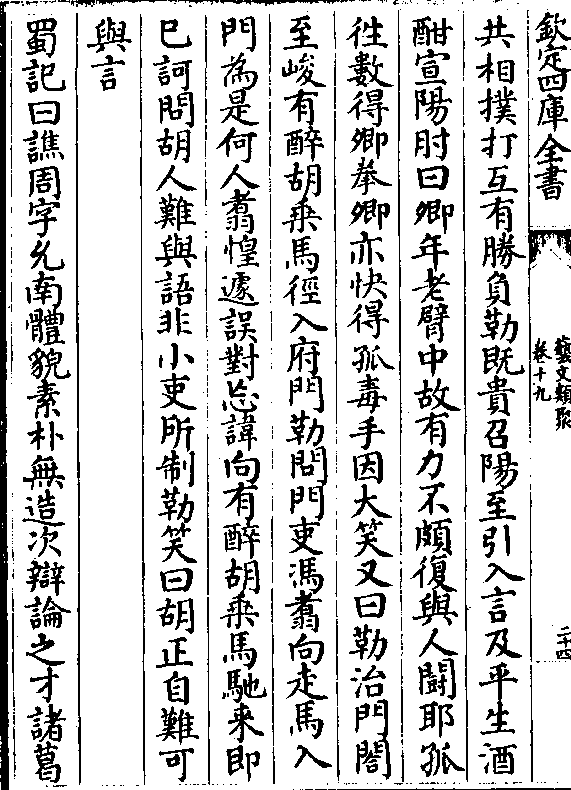 欽定四庫全書
藝文類聚
卷十九
二十四
共相撲打互有勝負勒既貴召陽至引入言及平生酒
酣宣陽肘曰卿年老臂中故有力不頗復與人鬭耶孤
徃數得卿拳卿亦快得孤毒手因大笑又曰勒治門閤
至峻有醉胡乘馬徑入府門勒問門吏馮翥向走馬入
門為是何人翥惶遽誤對忘諱向有醉胡乘馬馳來即
已訶問胡人難與語非小吏所制勒笑曰胡正自難可
與言
蜀記曰譙周字允南體貌素朴無造次辯論之才諸葛